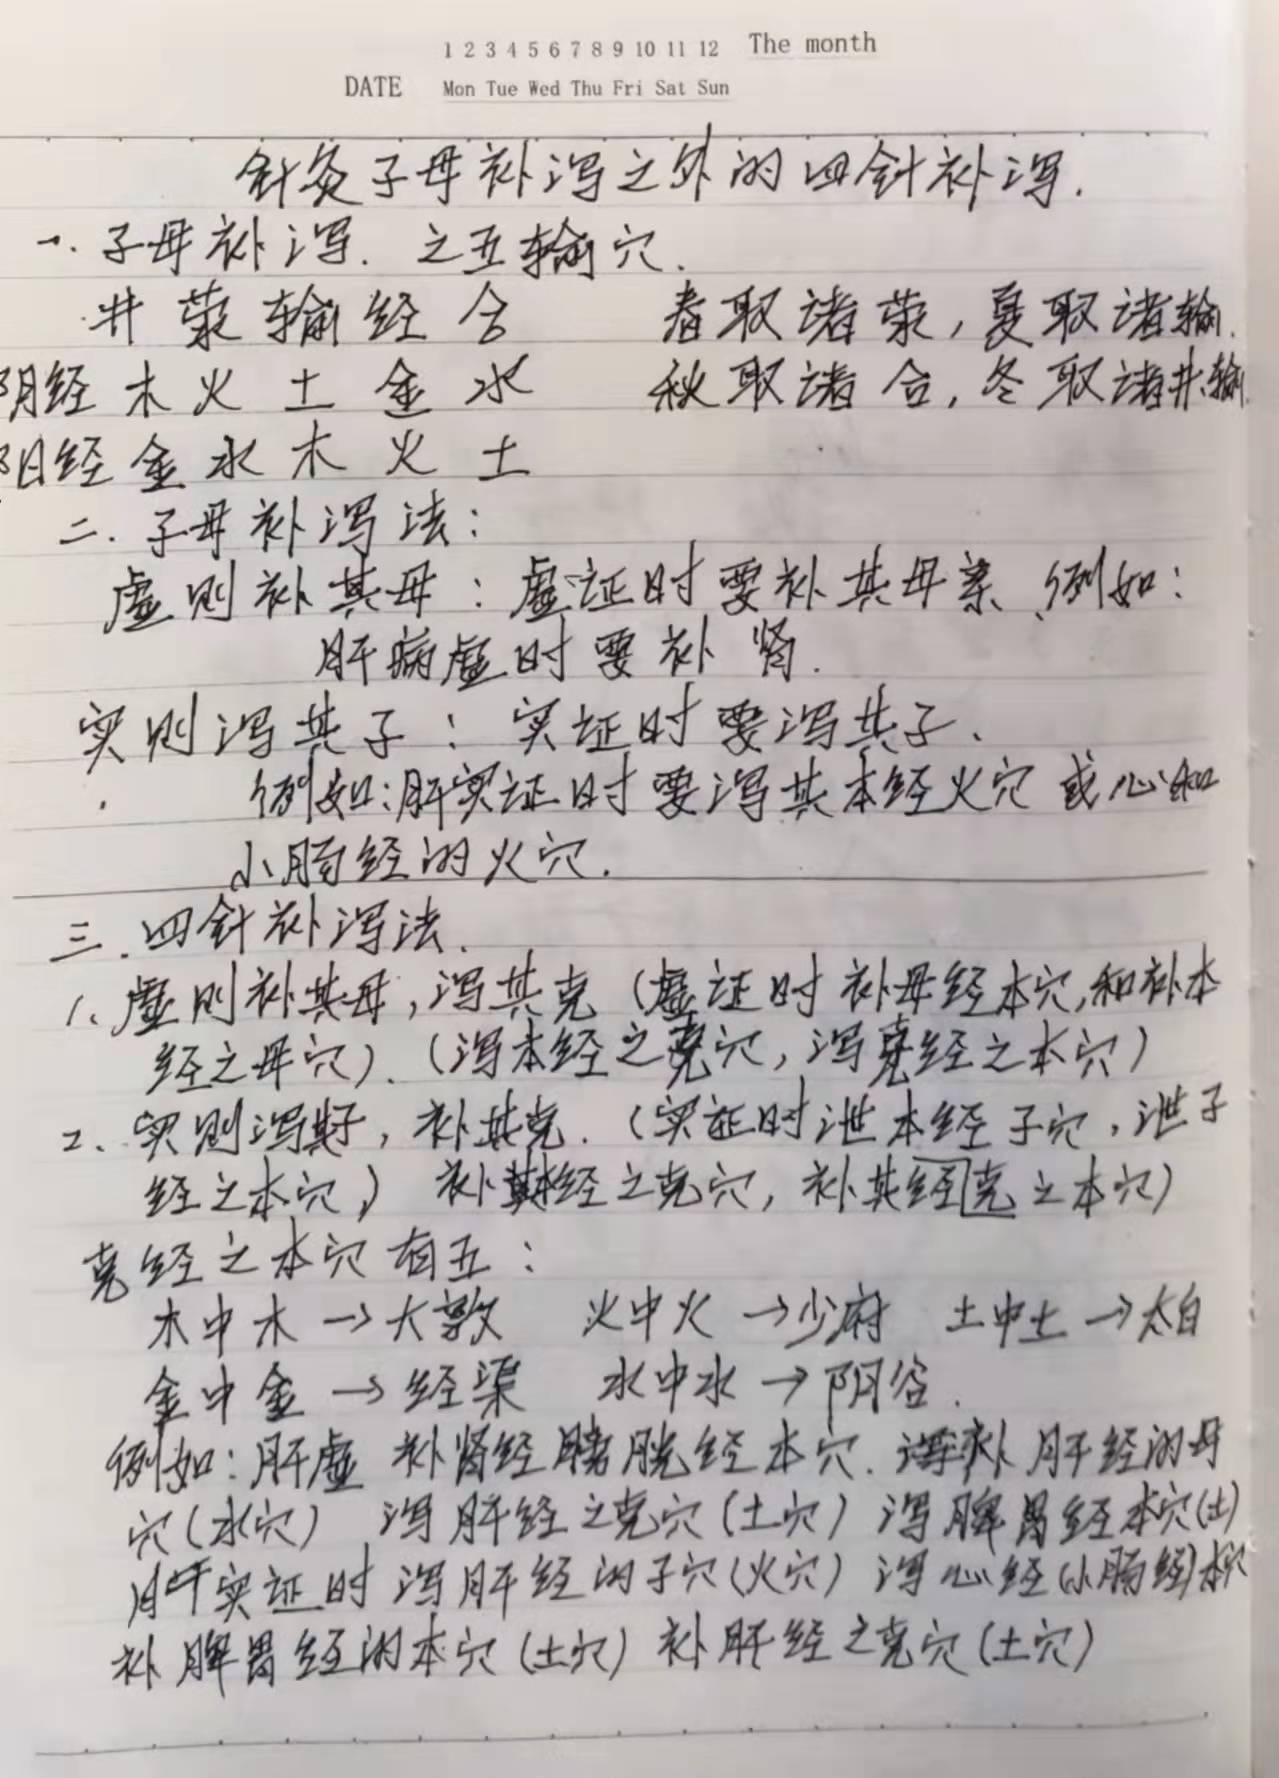 1 2 3 4 5 6 7 8 9 10 11 12 The month
DATE Mon Tue Wed Thu Fri Sat Sun
针灸子母补泻之外的四针补泻.
一. 子母补泻. 之五输穴.
井 荥 输 经 合 春取诸荥, 夏取诸输.
阴经 木 火 土 金 水 秋取诸合, 冬取诸井输.
阳经 金 水 木 火 土
二. 子母补泻法:
虚则补其母: 虚证时要补其母亲、例如:
肝病虚时要补肾.
实则泻其子: 实证时要泻其子.
例如:肝实证时要泻其本经火穴 或心和
小肠经的火穴.
三. 四针补泻法.
1、虚则补其母,泻其克(虚证时补母经本穴,和补本
经之母穴).(泻本经之克穴,泻克经之本穴)
2、实则泻其子,补其克.(实证时泄本经子穴,泄子
经之本穴,) 补其本经之克穴,补其经克之本穴)
克经之本穴有五:
木中木→大敦 火中火→少府 土中土→太白
金中金→经渠 水中水→阴谷.
例如:肝虚 补肾经膀胱经本穴. 补肝经的母
穴(水穴) 泻肝经之克穴(土穴) 泻脾胃经本穴(土)
肝实证时 泻肝经的子穴(火穴) 泻心经(小肠经)本穴
补脾胃经的本穴(土穴) 补肝经之克穴(土穴)